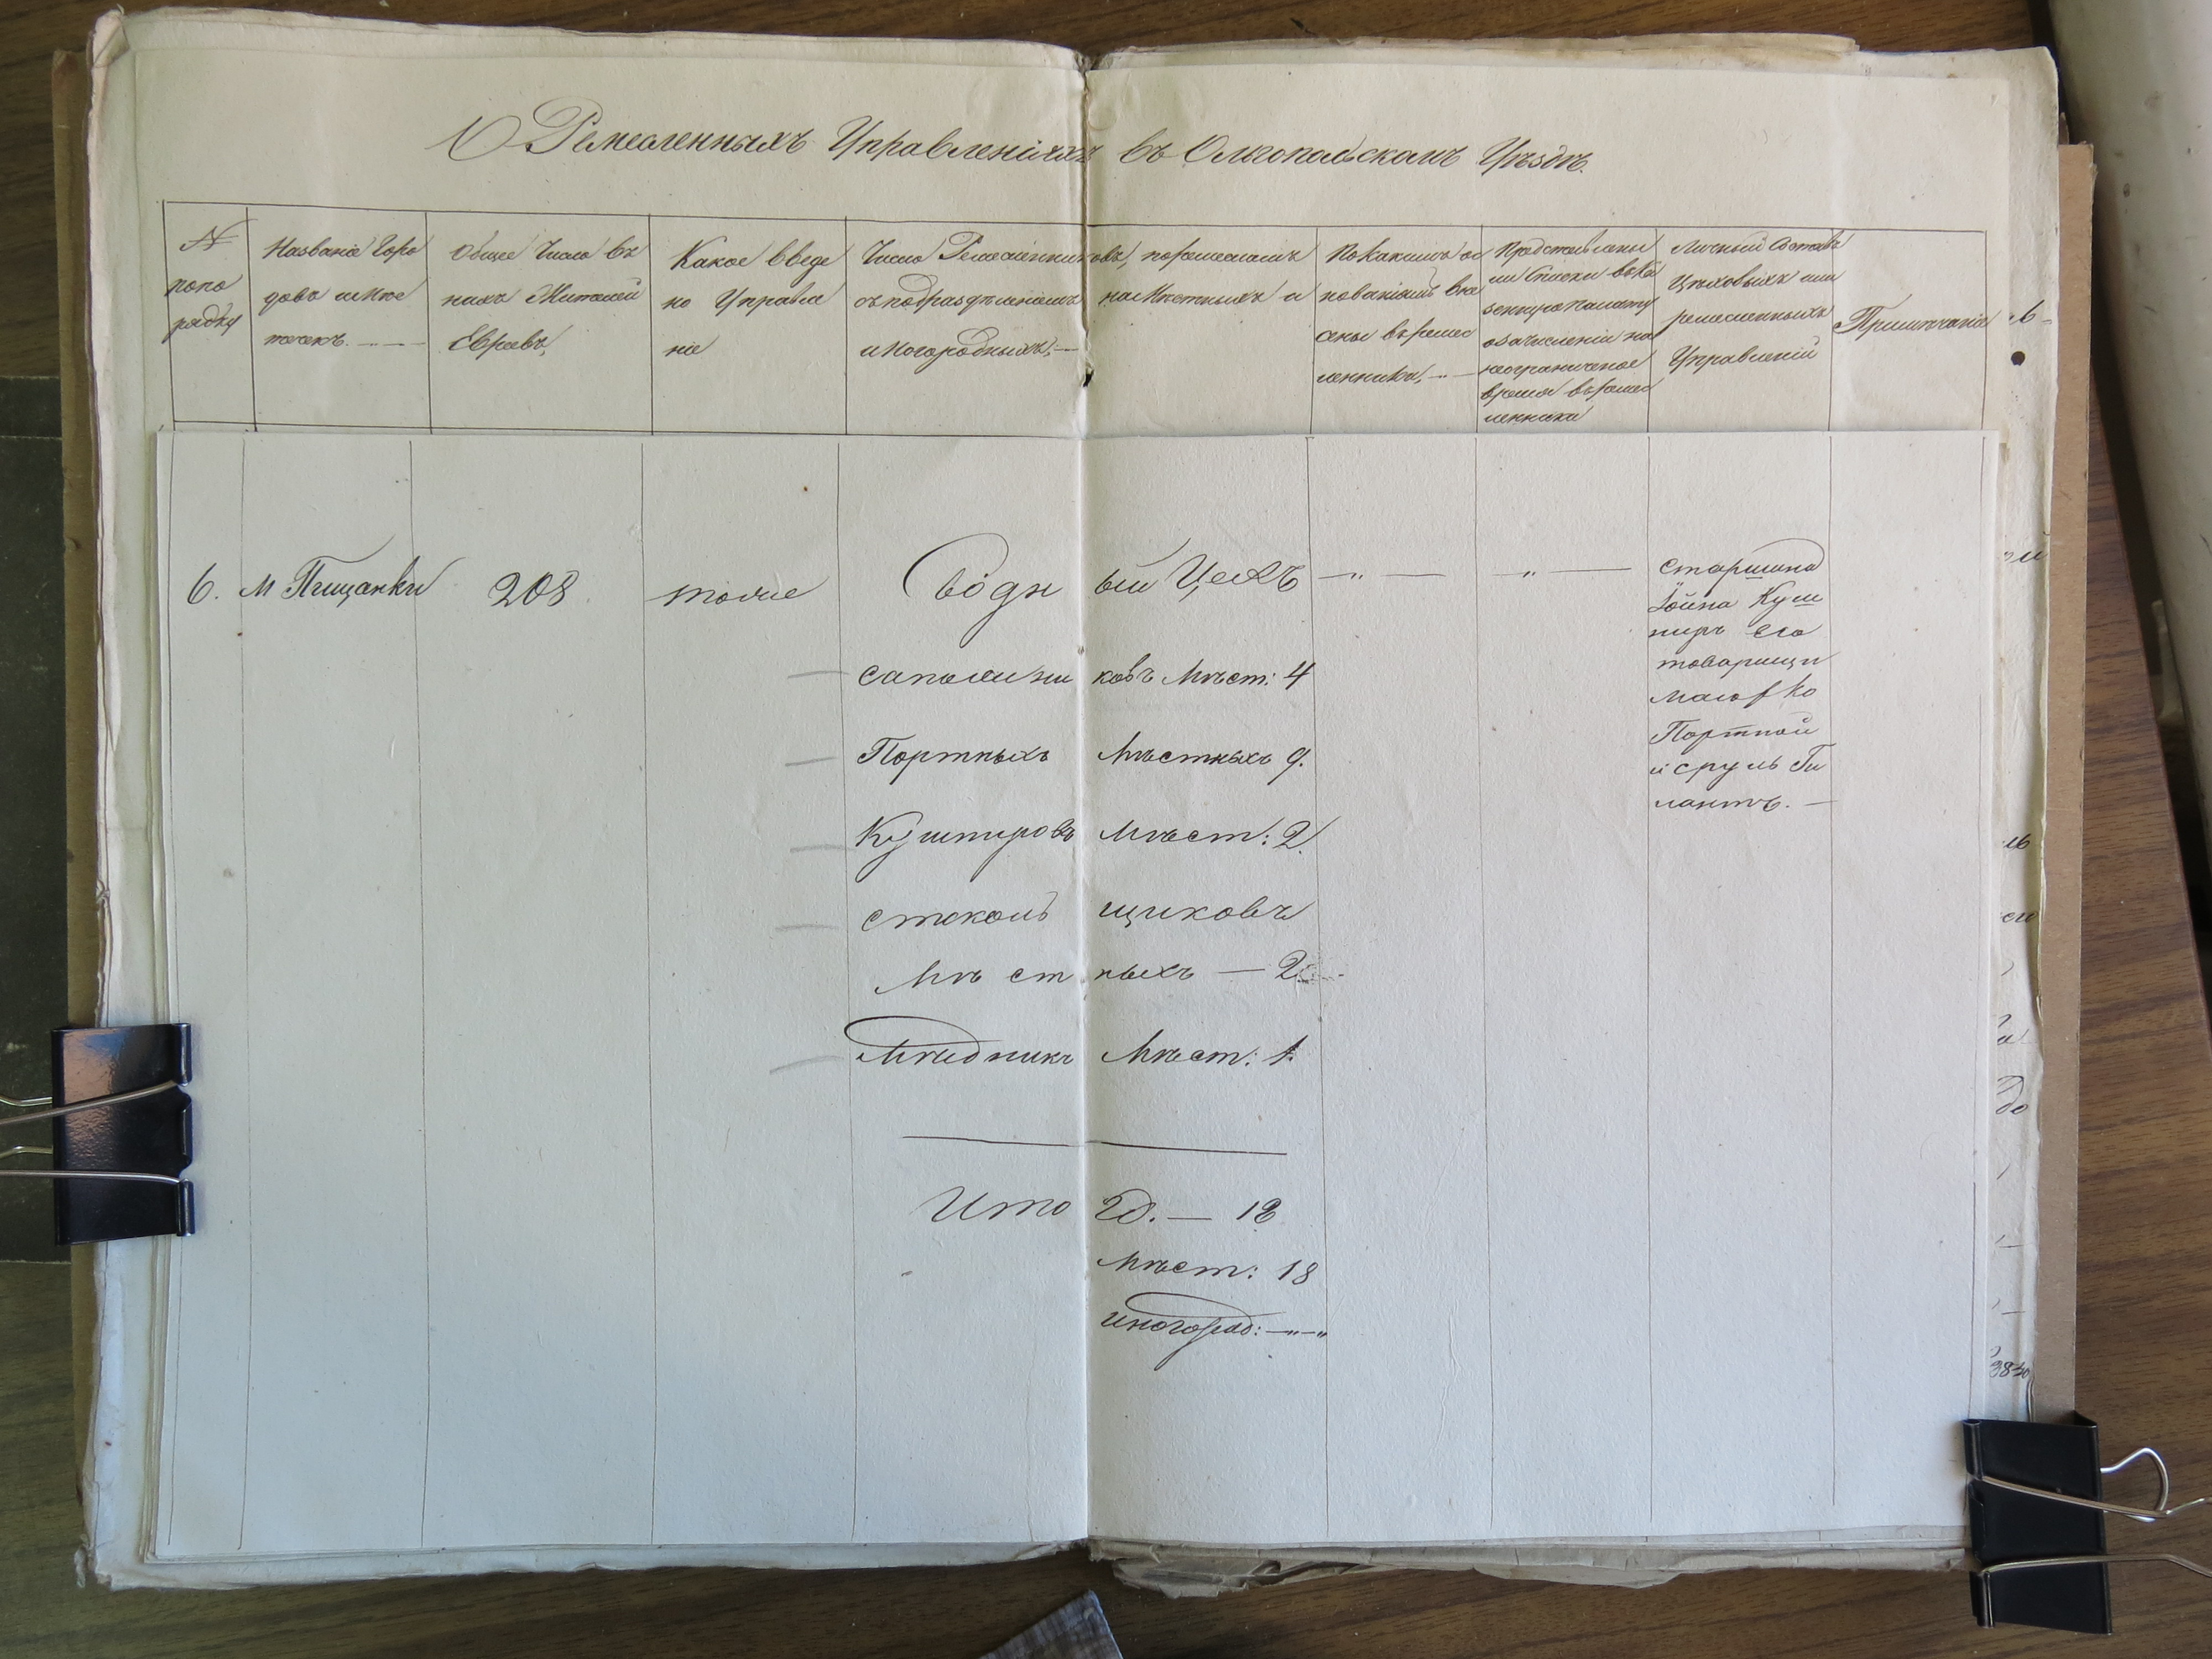 О Ремесленныхъ Управленіяхъ въ Ольгопольскомъ Уѣздѣ.
№ попо рядку
Названіе Горо
довъ и мѣс
течекъ. —
Общее Число въ
нихъ Жителей
Евреевъ,
Какое Введе
но Управле
ніе
Число Ремесленниковъ, поремесламъ
съ подраздѣленіемъ на Мѣстныхъ и
иногородныхъ, —
По какимъ ос
нованіямъ вне
сены въ ремес
ленники, —
Представлены
ли Списки въ Ка
зенную Палату
о зачисленіи на
неограниченое
время въ ремес
ленники
Личный Составъ
Цеховыхъ или
ремесленныхъ
Управленій
Примѣчаніе
6. М Пищанки 208 тоже Сводный Цехъ — „ — „ —
сапожниковъ Мѣст: 4
Портныхъ Мѣстныхъ 9.
Кушнировъ Мѣст: 2.
стекольщиковъ
Мѣстныхъ — 2
Мѣдникъ Мѣст: 1.
Итого. — 18
Мѣст: 18
иногород: — „ — „
старшина
Іойна Куш
ниръ его
товарищи
Маіорко
Портной
и Сруль Ги
лантъ. —